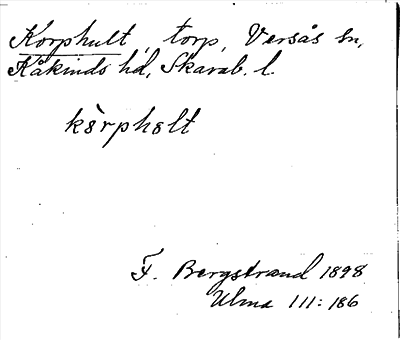 Korphult, torp, Versås sn,
Kåkinds hd, Skarab. l.
kòrphòlt
F. Bergstrand 1898
Ulma 111: 186